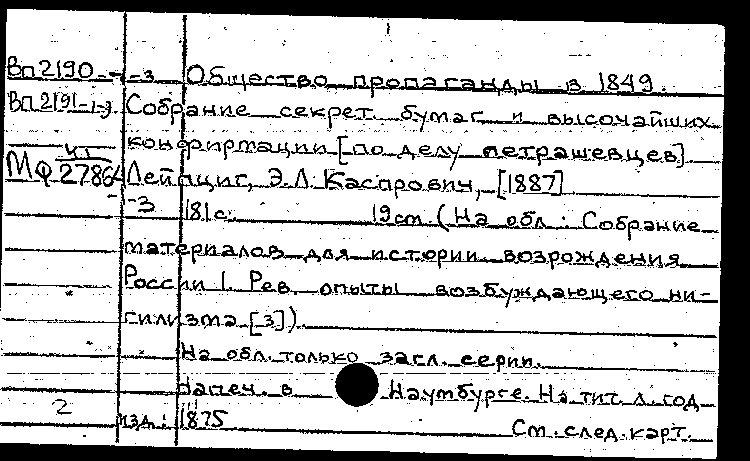 Вп 2190 - -3 Общество пропаганды в 1849.
Вп 2191-1-3. Собрание секрет. бумаг и высочайших
конфирмации [по делу петрашевцев]
МФ 27864 Лейпциг, Э.Л. Каспрович, [1887]
-3 181 с. 19 см. (На обл.: Собрание
материалов для истории возрождения
России 1. Рев. опыты возбуждающего ни-
гилизма [3]).
На обл. только загл. серии.
Напеч. в Наумбурге. На тит. л. год
2 изд.: 1875 См. след. карт.